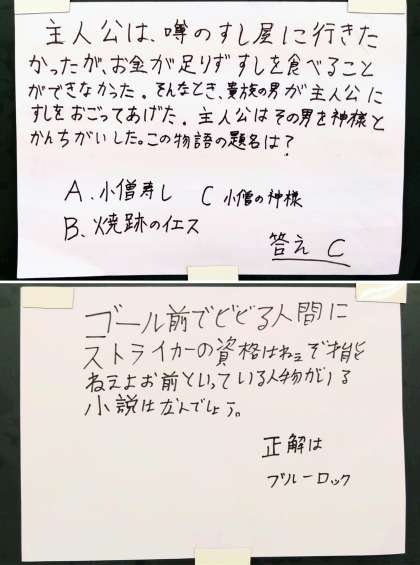 主人公は、噂のすし屋に行きた
かったが、お金が足りずすしを食べること
ができなかった。そんなとき、貴族の男が主人公に
すしをおごってあげた。主人公はその男を神様と
かんちがいした。この物語の題名は?
A、小僧寿し C 小僧の神様
B、焼跡のイエス
答え C
ゴール前でビビる人間に
ストライカーの資格はねぇぞ才能
ねえよお前といっている人物がいる
小説はなんでしょう。
正解は
ブルーロック